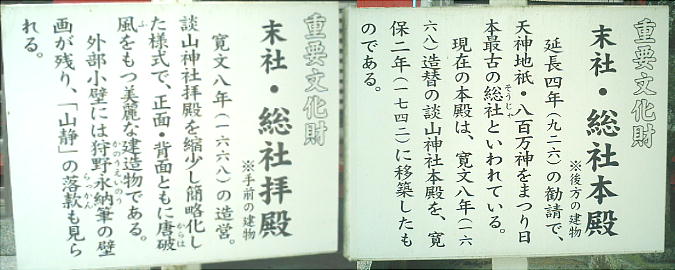 重要文化財
末社・総社拝殿
※手前の建物
寛文八年(一六六八)の造営。
談山神社拝殿を縮少し簡略化し
た様式で、正面・背面ともに唐破
からは
風をもつ美麗な建造物である。
ふ
外部小壁には狩野永納筆の壁
かのうえいのう
画が残り、「山静」の落款も見ら
らっかん
れる。
重要文化財
末社・総社本殿
※後方の建物
延長四年(九二六)の勧請で、
天神地祇・八百万神をまつり日
本最古の総社といわれている。
そうじゃ
現在の本殿は、寛文八年(一六
六八)造替の談山神社本殿を、寛
保二年(一七四二)に移築したも
のである。